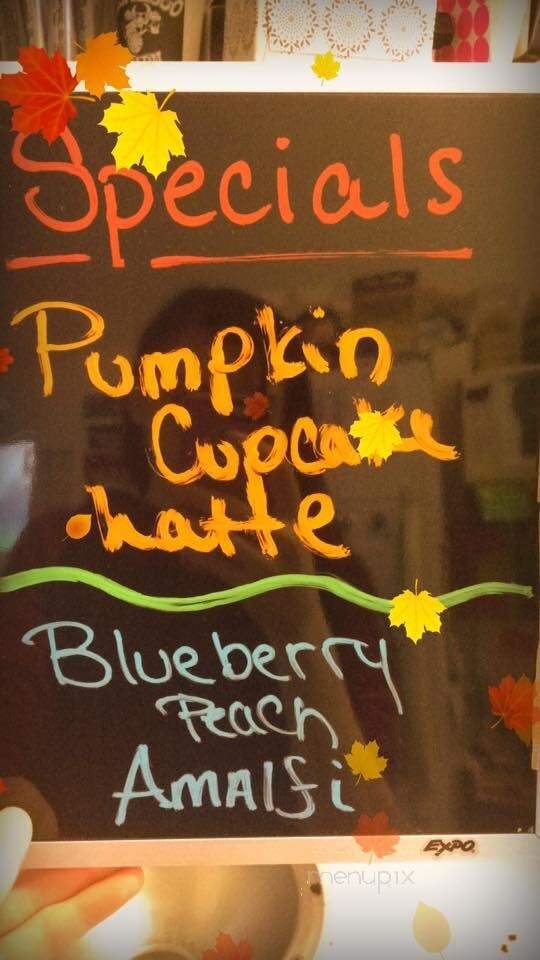 Specials
Pumpkin
Cupcake
Latte
Blueberry
Peach
Amalfi
EXPO
menupix